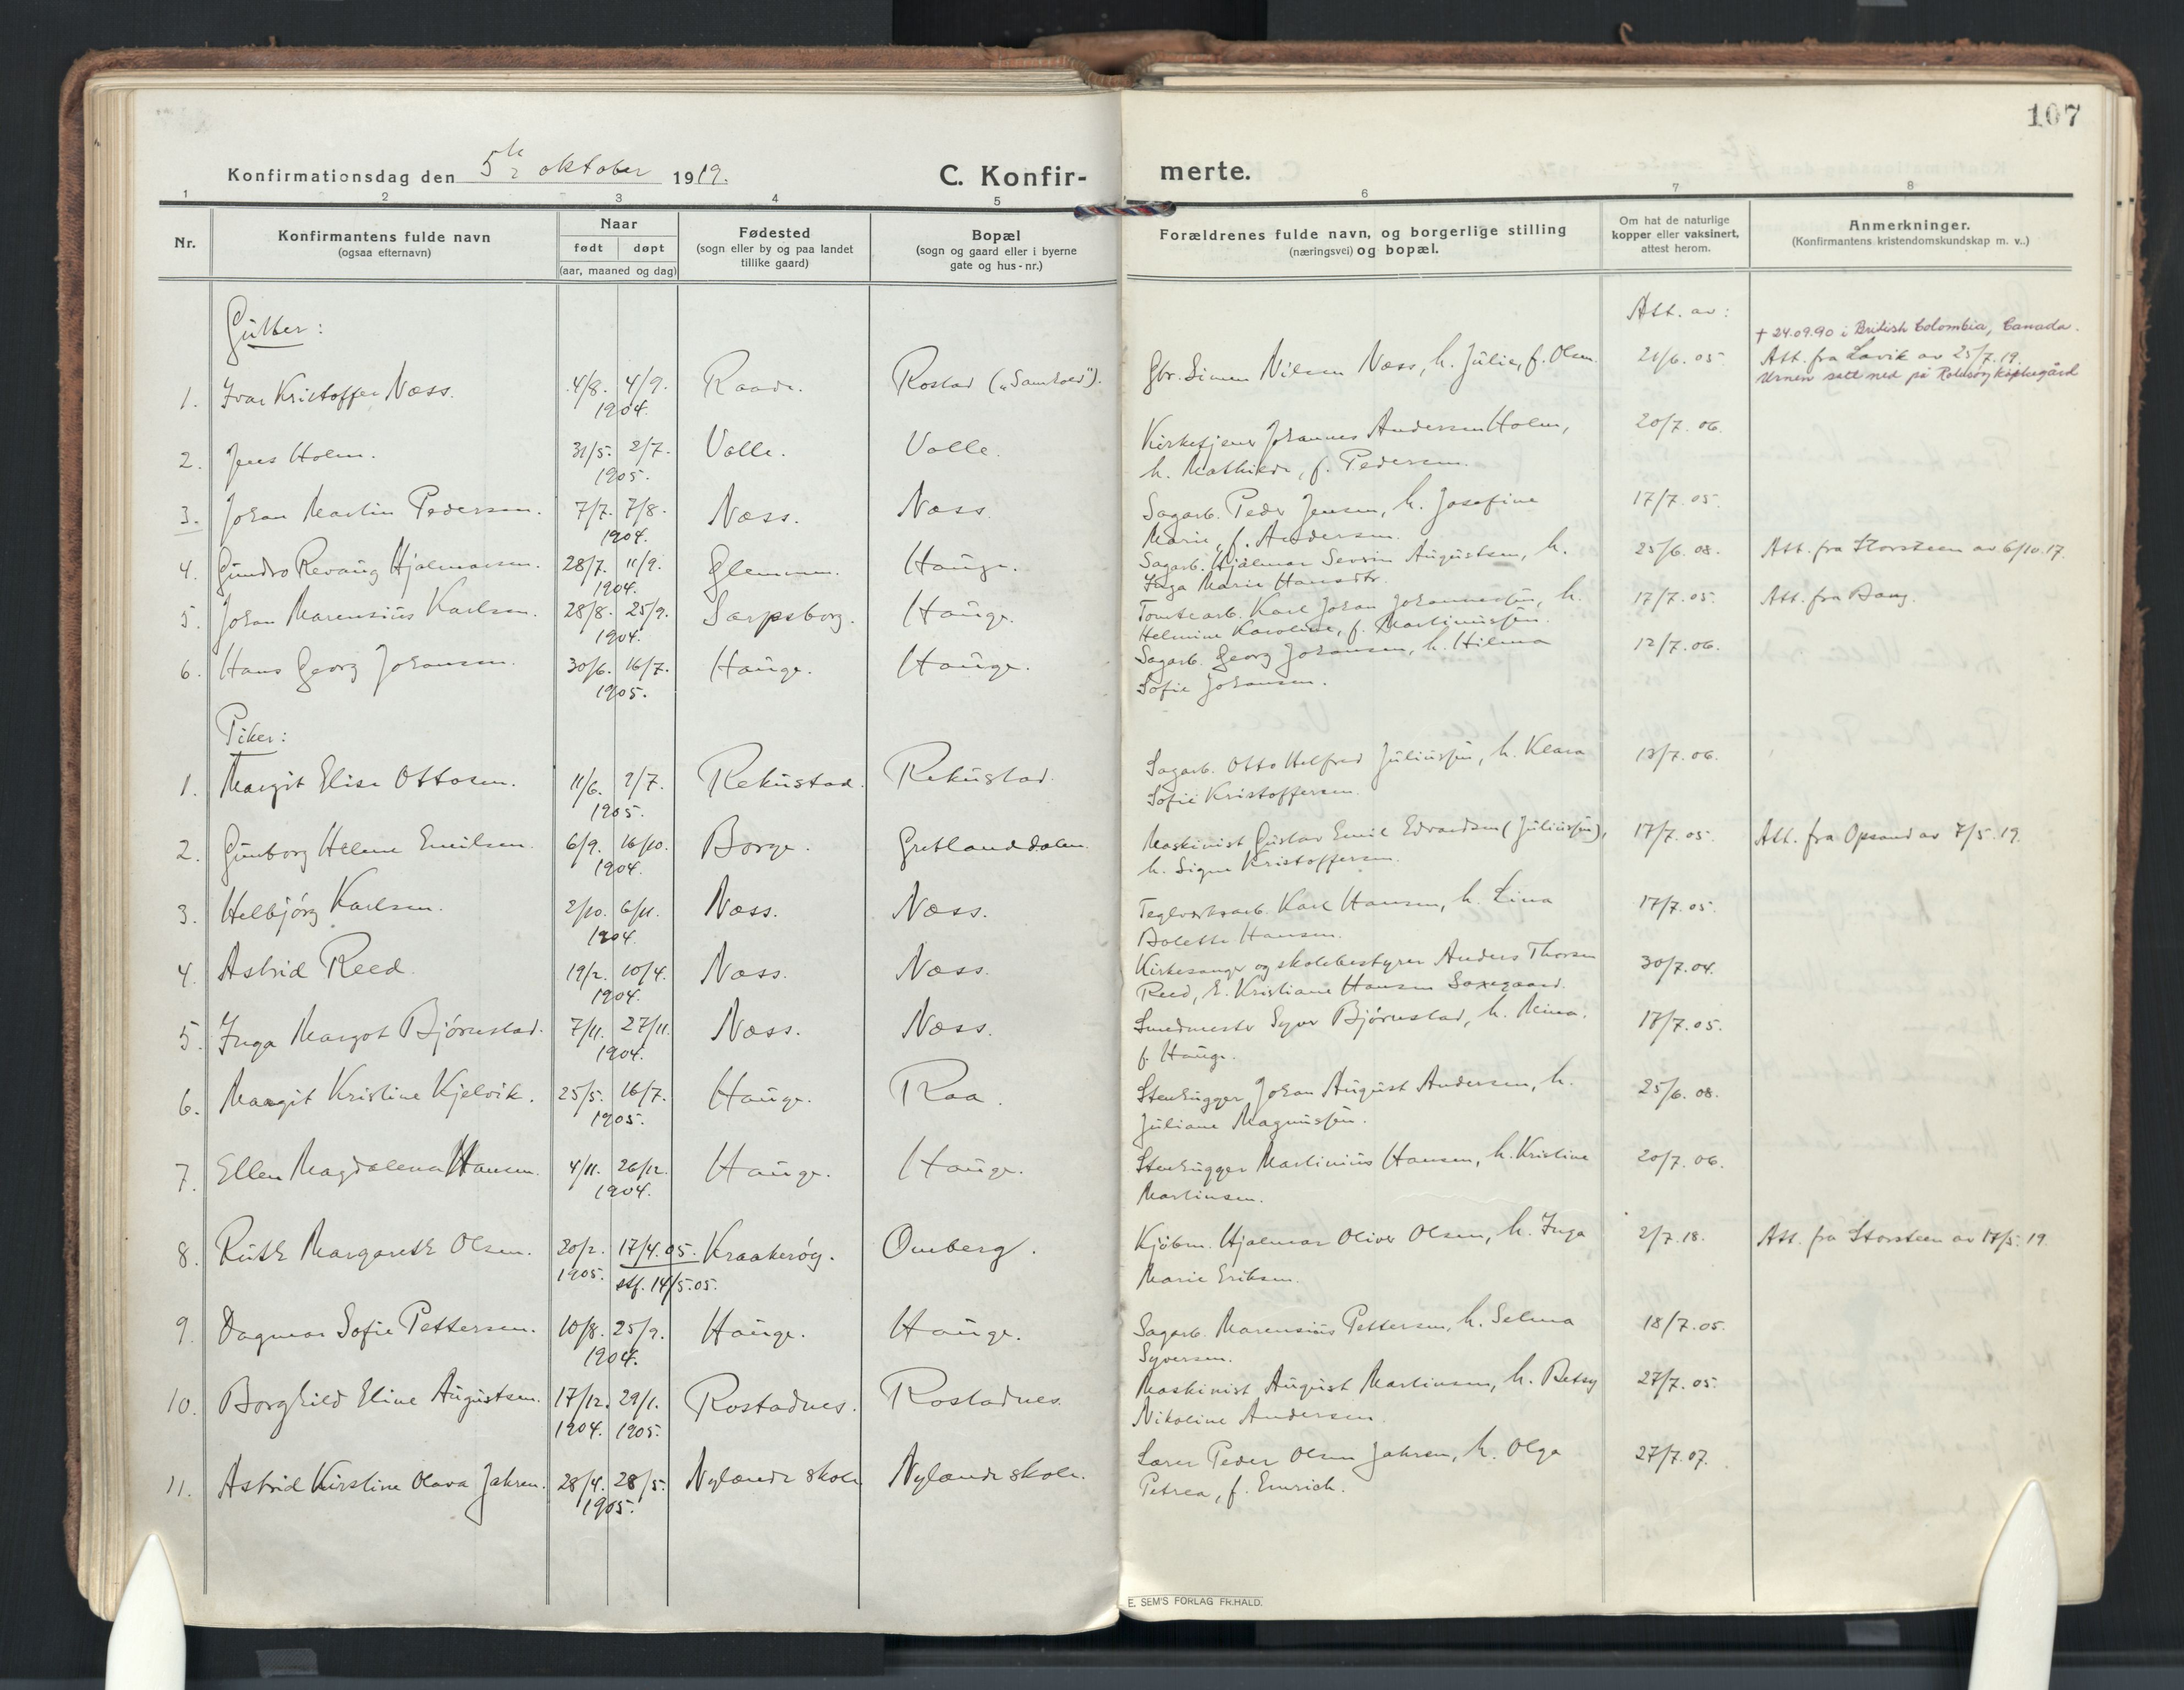 107
Konfirmationsdag den 5te oktober 1919.
C. Konfir-
merte.
1 2 3 4 5 6 7 8
Nr.
Konfirmantens fulde navn
(ogsaa efternavn)
Naar
født døpt
(aar, maaned og dag)
Fødested
(sogn eller by og paa landet
tillike gaard)
Bopæl
(sogn og gaard eller i byerne
gate og hus-nr.)
Forældrenes fulde navn, og borgerlige stilling
(næringsvei) og bopæl.
Om hat de naturlige
kopper eller vaksinert,
attest herom.
Anmerkninger.
(Konfirmantens kristendomskundskap m. v..)
Gutter:
Att. av:
† 24.09.90 i British Colombia, Canada.
1. Ivar Kristoffer Næss. 4/8. 4/9. Raade. Rostad ("Samhold"). Gbr. Simen Nilsen Næss, h. Julie, f. Olsen. 21/6. 05 Att. fra Lavik av 25/7.19.
1904.
Urnen satt ned på Rolvsøy kirkegård
2. Jens Holm. 31/5. 2/7. Valle. Valle. Kirketjener Johannes Andersen Holm, 20/7. 06.
1905.
h. Mathilde, f. Pedersen.
3. Johan Martin Pedersen. 7/7. 7/8. Næss. Næss. Sagarb. Peder Jensen, h. Josefine 17/7. 05.
1904.
Marie, f. Andersen.
4. Gundro Revaug Hjalmarsen. 28/7. 11/9. Glemmen. Hauge. Sagarb. Hjalmar Severin Augustsen, h. 25/6. 08. Att. fra Storsteen av 6/10.17.
1904.
Inga Marie Hansdtr.
5. Johan Marensius Karlsen. 28/8. 25/9. Sarpsborg. Hauge. Tomtearb. Karl Johan Johannessen, h. 17/7. 05. Att. fra Bang.
1904.
Helmine Karoline, f. Martinussen.
6. Hans Georg Johansen. 30/6. 16/7. Hauge. Hauge. Sagarb. Georg Johansen, h. Hilma 12/7. 06.
1905.
Sofie Johansen.
Piker:
1. Margit Elise Ottosen. 11/6. 2/7. Rekustad. Rekustad. Sagarb. Otto Helfred Juliussen, h. Klara 13/7. 06.
1905.
Sofie Kristoffersen.
2. Gunborg Helene Emilsen. 6/9. 16/10. Borge. Gretlanddalen. Maskinist Gustav Emil Edvardsen (Juliussen), 17/7. 05. Att. fra Opsand av 7/5.19.
1904.
h. Signe Kristoffersen.
3. Helbjørg Karlsen. 2/10. 6/11. Næss. Næss. Teglverksarb. Karl Hansen, h. Lina 17/7. 05.
1904.
Bolette Hansen.
4. Astrid Reed. 19/2. 10/4. Næss. Næss. Kirkesanger og skolebestyrer Anders Thorsen 30/7. 04.
1904.
Reed, h. Kristiane Hansen Saxegaard.
5. Inga Margot Bjørnstad. 7/11. 27/11. Næss. Næss. Smedmester Syver Bjørnstad, h. Mina, 17/7. 05.
1904.
f. Hauge.
6. Margit Kristine Kjelvik. 25/5. 16/7. Hauge. Raa. Stenhugger Johan August Andersen, h. 25/6. 08.
1905.
Juliane Magnussen.
7. Ellen Magdalena Hansen. 4/11. 26/12. Hauge. Hauge. Stenhugger Martinius Hansen, h. Kristine 20/7. 06.
1904.
Martinsen.
8. Ruth Margareth Olsen. 20/2. 17/4.05. Kraakerøy. Omberg. Kjøbm. Hjalmar Oliver Olsen, h. Inga 2/7. 18. Att. fra Storsteen av 17/5. 19.
1905. stf. 14/5.05.
Marie Eriksen.
9. Dagmar Sofie Pettersen. 10/8. 25/9. Hauge. Hauge. Sagarb. Marensius Pettersen, h. Selma 18/7. 05.
1904.
Syversen.
10. Borghild Eline Augustsen. 17/12. 29/1. Rostadnes. Rostadnes. Maskinist August Martinsen, h. Betsy 27/7. 05.
1904. 1905.
Nikoline Andersen.
11. Astrid Kirstine Olava Jahren. 28/4. 28/5. Nylænde skole Nylænde skole. Lærer Peder Olsen Jahren, h. Olga 27/7. 07.
1905.
Petrea, f. Emrich.
E. SEM'S FORLAG FR.HALD.